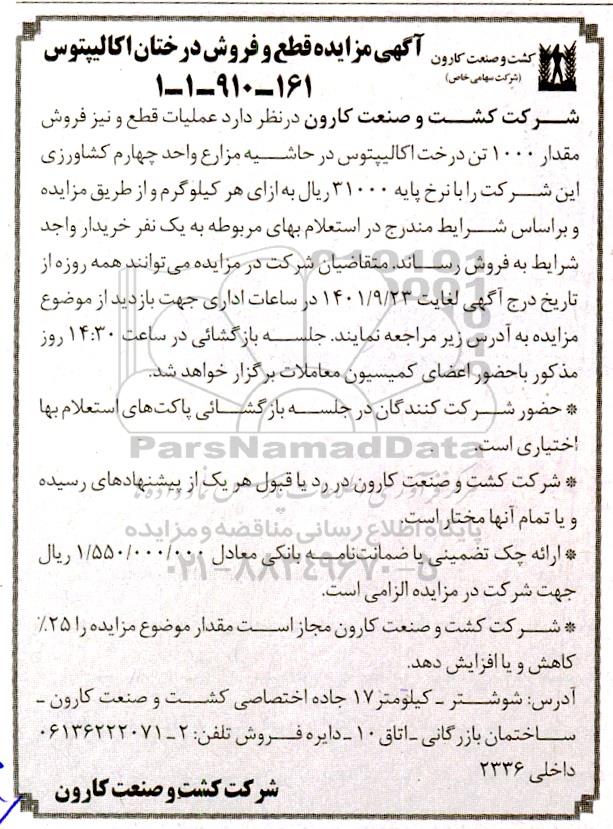 کشت و صنعت کارون
(شرکت سهامی خاص)
آگهی مزایده قطع و فروش درختان اکالیپتوس
۱-۱-۹۱۰-۱۶۱
شرکت کشت و صنعت کارون درنظر دارد عملیات قطع و نیز فروش
مقدار ۱۰۰۰ تن درخت اکالیپتوس در حاشیه مزارع واحد چهارم کشاورزی
این شرکت را با نرخ پایه ۳۱۰۰۰ ریال به ازای هر کیلوگرم و از طریق مزایده
و براساس شرایط مندرج در استعلام بهای مربوطه به یک نفر خریدار واجد
شرایط به فروش رساند. متقاضیان شرکت در مزایده می‌توانند همه روزه از
تاریخ درج آگهی لغایت ۱۴۰۱/۹/۲۳ در ساعات اداری جهت بازدید از موضوع
مزایده به آدرس زیر مراجعه نمایند. جلسه بازگشائی در ساعت ۱۴:۳۰ روز
مذکور باحضور اعضای کمیسیون معاملات برگزار خواهد شد.
* حضور شرکت کنندگان در جلسه بازگشائی پاکت‌های استعلام بها
اختیاری است.
ParsNamadData
* شرکت کشت و صنعت کارون در رد یا قبول هر یک از پیشنهادهای رسیده
و یا تمام آنها مختار است.
پایگاه اطلاع رسانی مناقصه و مزایده
* ارائه چک تضمینی یا ضمانت‌نامه بانکی معادل ۱/۵۵۰/۰۰۰/۰۰۰ ریال
۰۲۱-۸۸۳۴۹۶۷۰-۵
جهت شرکت در مزایده الزامی است.
* شرکت کشت و صنعت کارون مجاز است مقدار موضوع مزایده را ۲۵٪
کاهش و یا افزایش دهد.
آدرس: شوشتر ـ کیلومتر ۱۷ جاده اختصاصی کشت و صنعت کارون ـ
ساختمان بازرگانی ـ اتاق ۱۰ ـ دایره فروش تلفن: ۲ ـ ۰۶۱۳۶۲۲۲۰۷۱
داخلی ۲۳۳۶
شرکت کشت و صنعت کارون